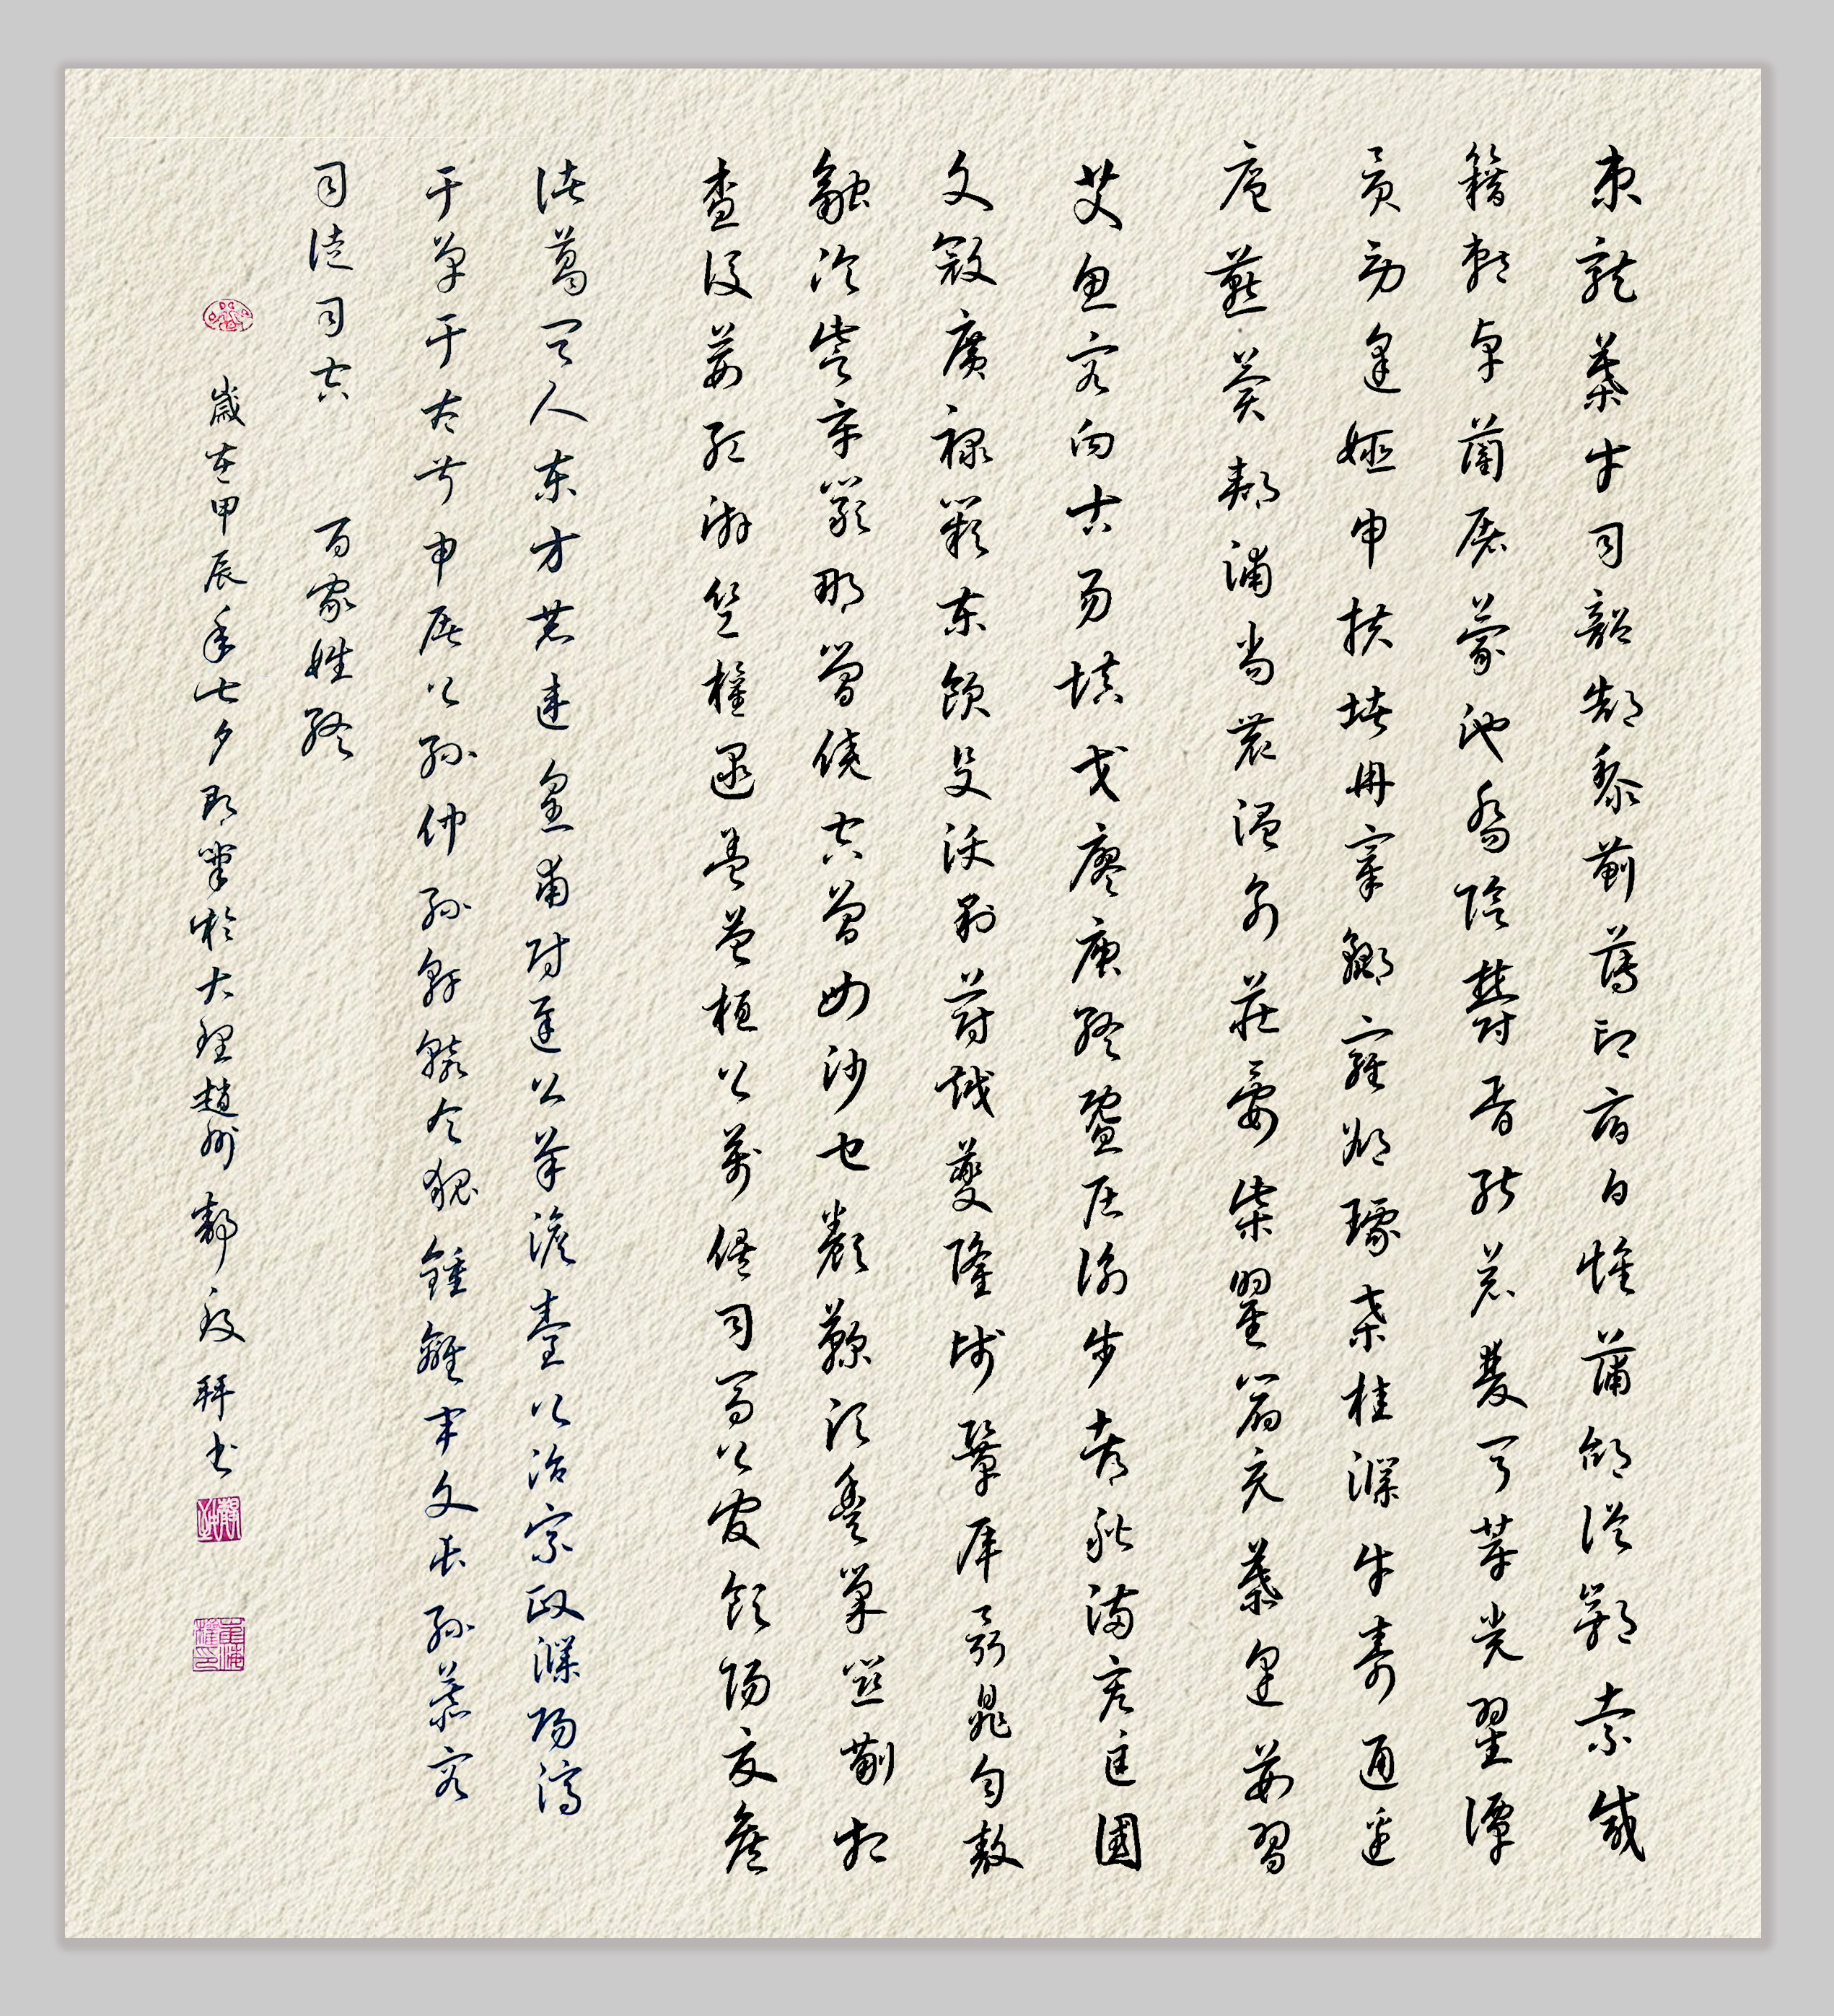 束龍葉幸司韶郜黎薊薄印宿白懷蒲邰從鄂索咸
籍賴卓藺屠蒙池喬陰鬱胥能蒼雙聞莘党翟譚
貢勞逄姬申扶堵冉宰酈雍郤璩桑桂濮牛壽通邊
扈燕冀郟浦尚農溫別莊晏柴瞿閻充慕連茹習
艾魚容向古易慎戈廖庾終暨居衡步都耿滿弘匡國
文寇廣祿闕東歐殳沃利蔚越夔隆師鞏厙聶晁勾敖
融冷訾辛闞那簡饒空曾毋沙乜養鞠須豐巢關蒯相
查後荊紅游竺權逯蓋益桓公萬俟司馬上官歐陽夏侯
諸葛聞人東方赫連皇甫尉遲公羊澹臺公冶宗政濮陽淳
于單于太叔申屠公孫仲孫軒轅令狐鍾離宇文長孫慕容
司徒司空 百家姓終
歲在甲辰年七夕即筆於大理趙州 拜書